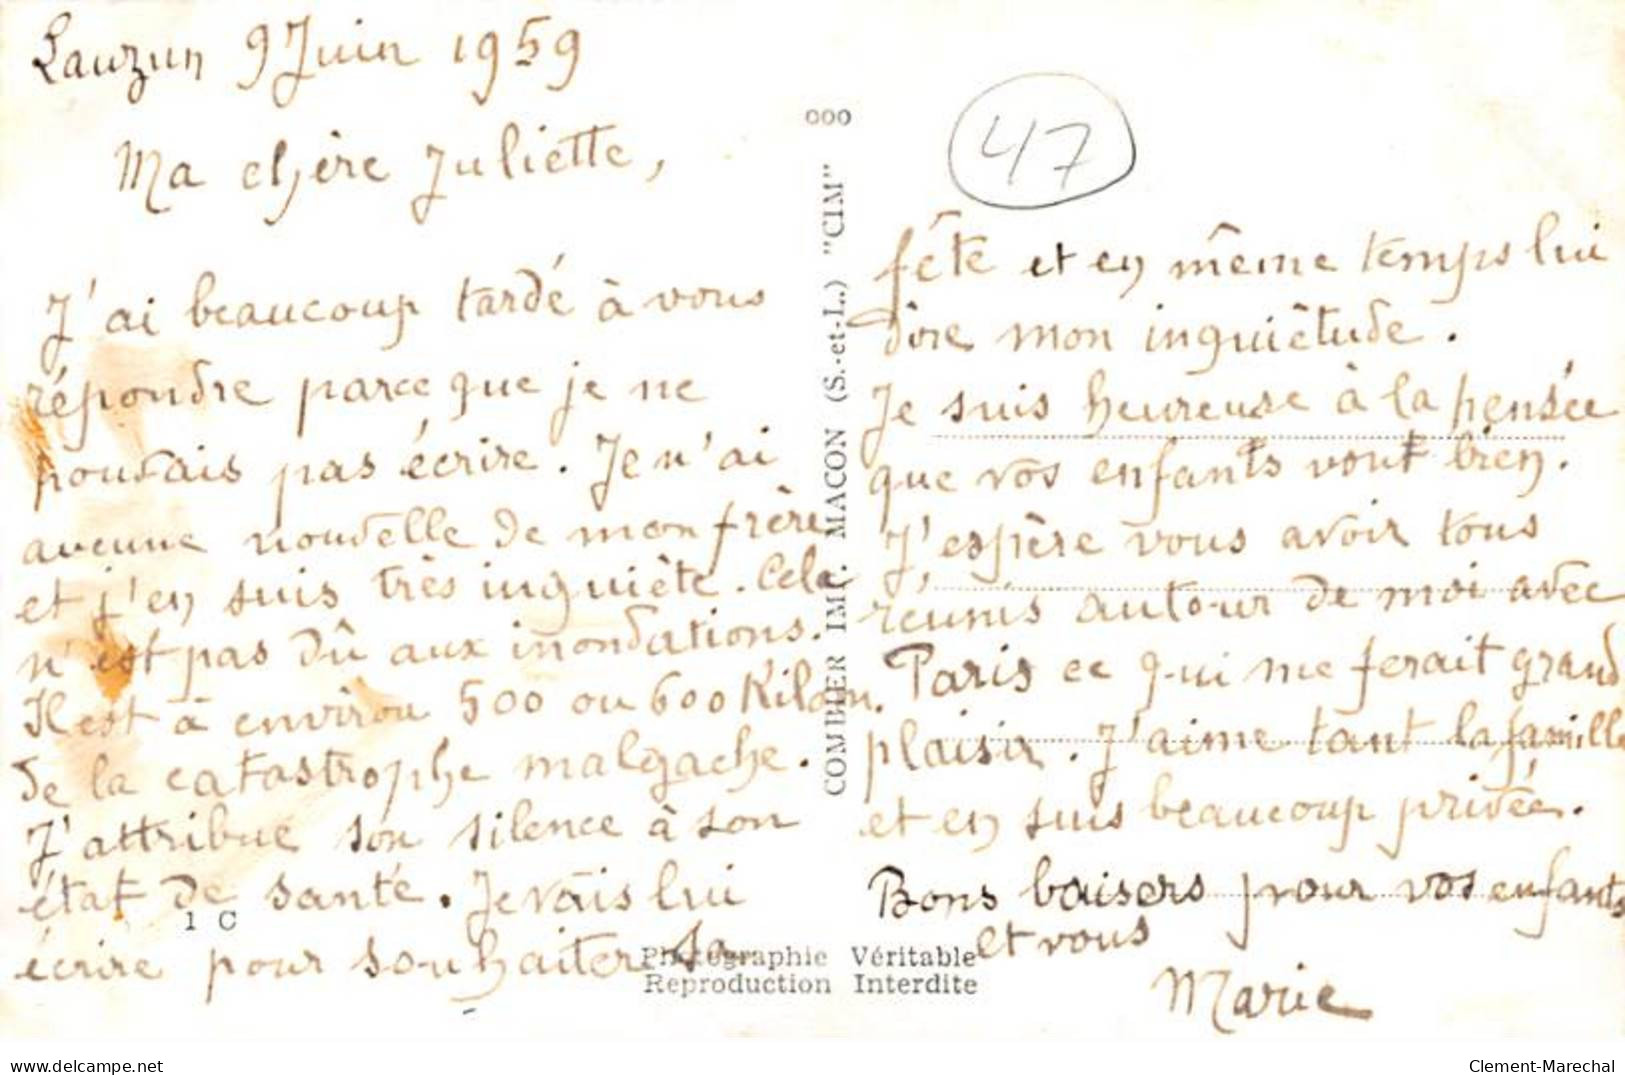 Lauzun 9 Juin 1959
Ma chère Juliette,
J'ai beaucoup tardé à vous
répondre parce que je ne
pouvais pas écrire. Je n'ai
aucune nouvelle de mon frère
et j'en suis très inquiète. Cela
n'est pas dû aux inondations.
Il est à environ 500 ou 600 Kilom.
de la catastrophe malgache.
J'attribue son silence à son
état de santé. Je vais lui
écrire pour souhaiter sa
1 C
000
COMBIER IMP. MACON (S.-et-L.) "CIM"
Photographie Véritable
Reproduction Interdite
47
fête et en même temps lui
dire mon inquiètude.
Je suis heureuse à la pensée
que vos enfants vont bien.
J'espère vous avoir tous
réunis autour de moi avec
Paris ce qui me ferait grand
plaisir. J'aime tant la famille
et en suis beaucoup privée.
Bons baisers pour vos enfants
et vous
Marie
delcampe.net
Clement-Marechal